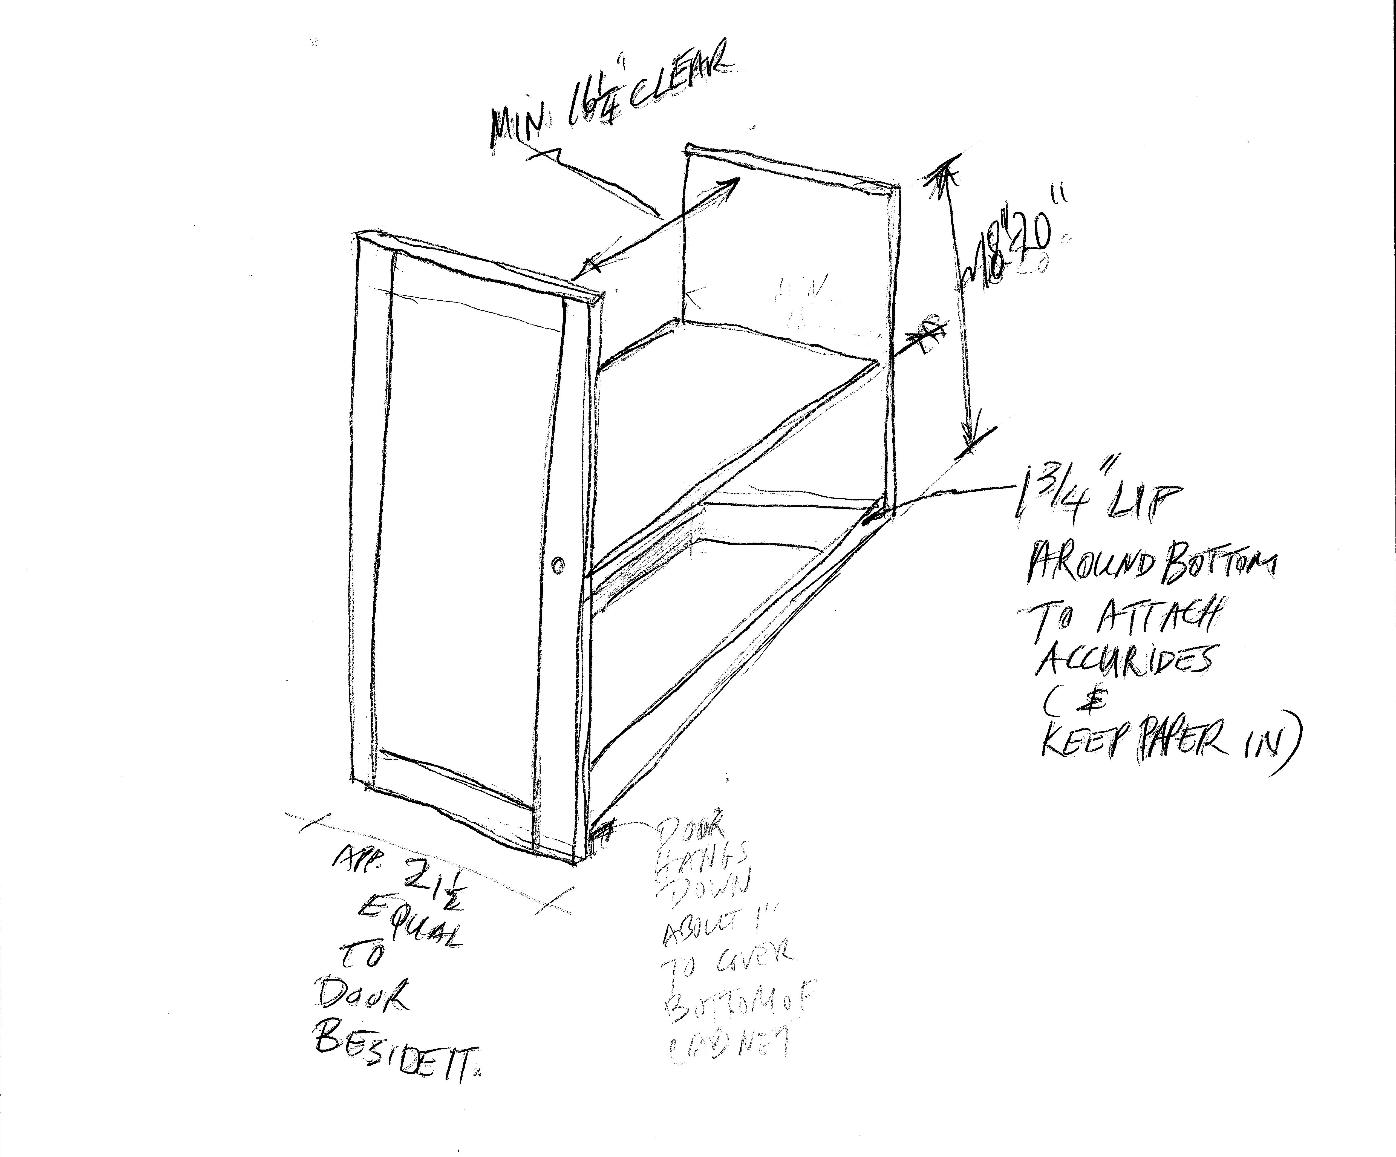 MIN. 16¼" CLEAR
18" 20"
1 3/4" LIP
AROUND BOTTOM
TO ATTACH
ACCURIDES
( &
KEEP PAPER IN)
APP. 21½
EQUAL
TO
DOOR
BESIDE IT.
DOOR
HANGS
DOWN
ABOUT 1"
TO COVER
BOTTOM OF
CABINET
MIN.